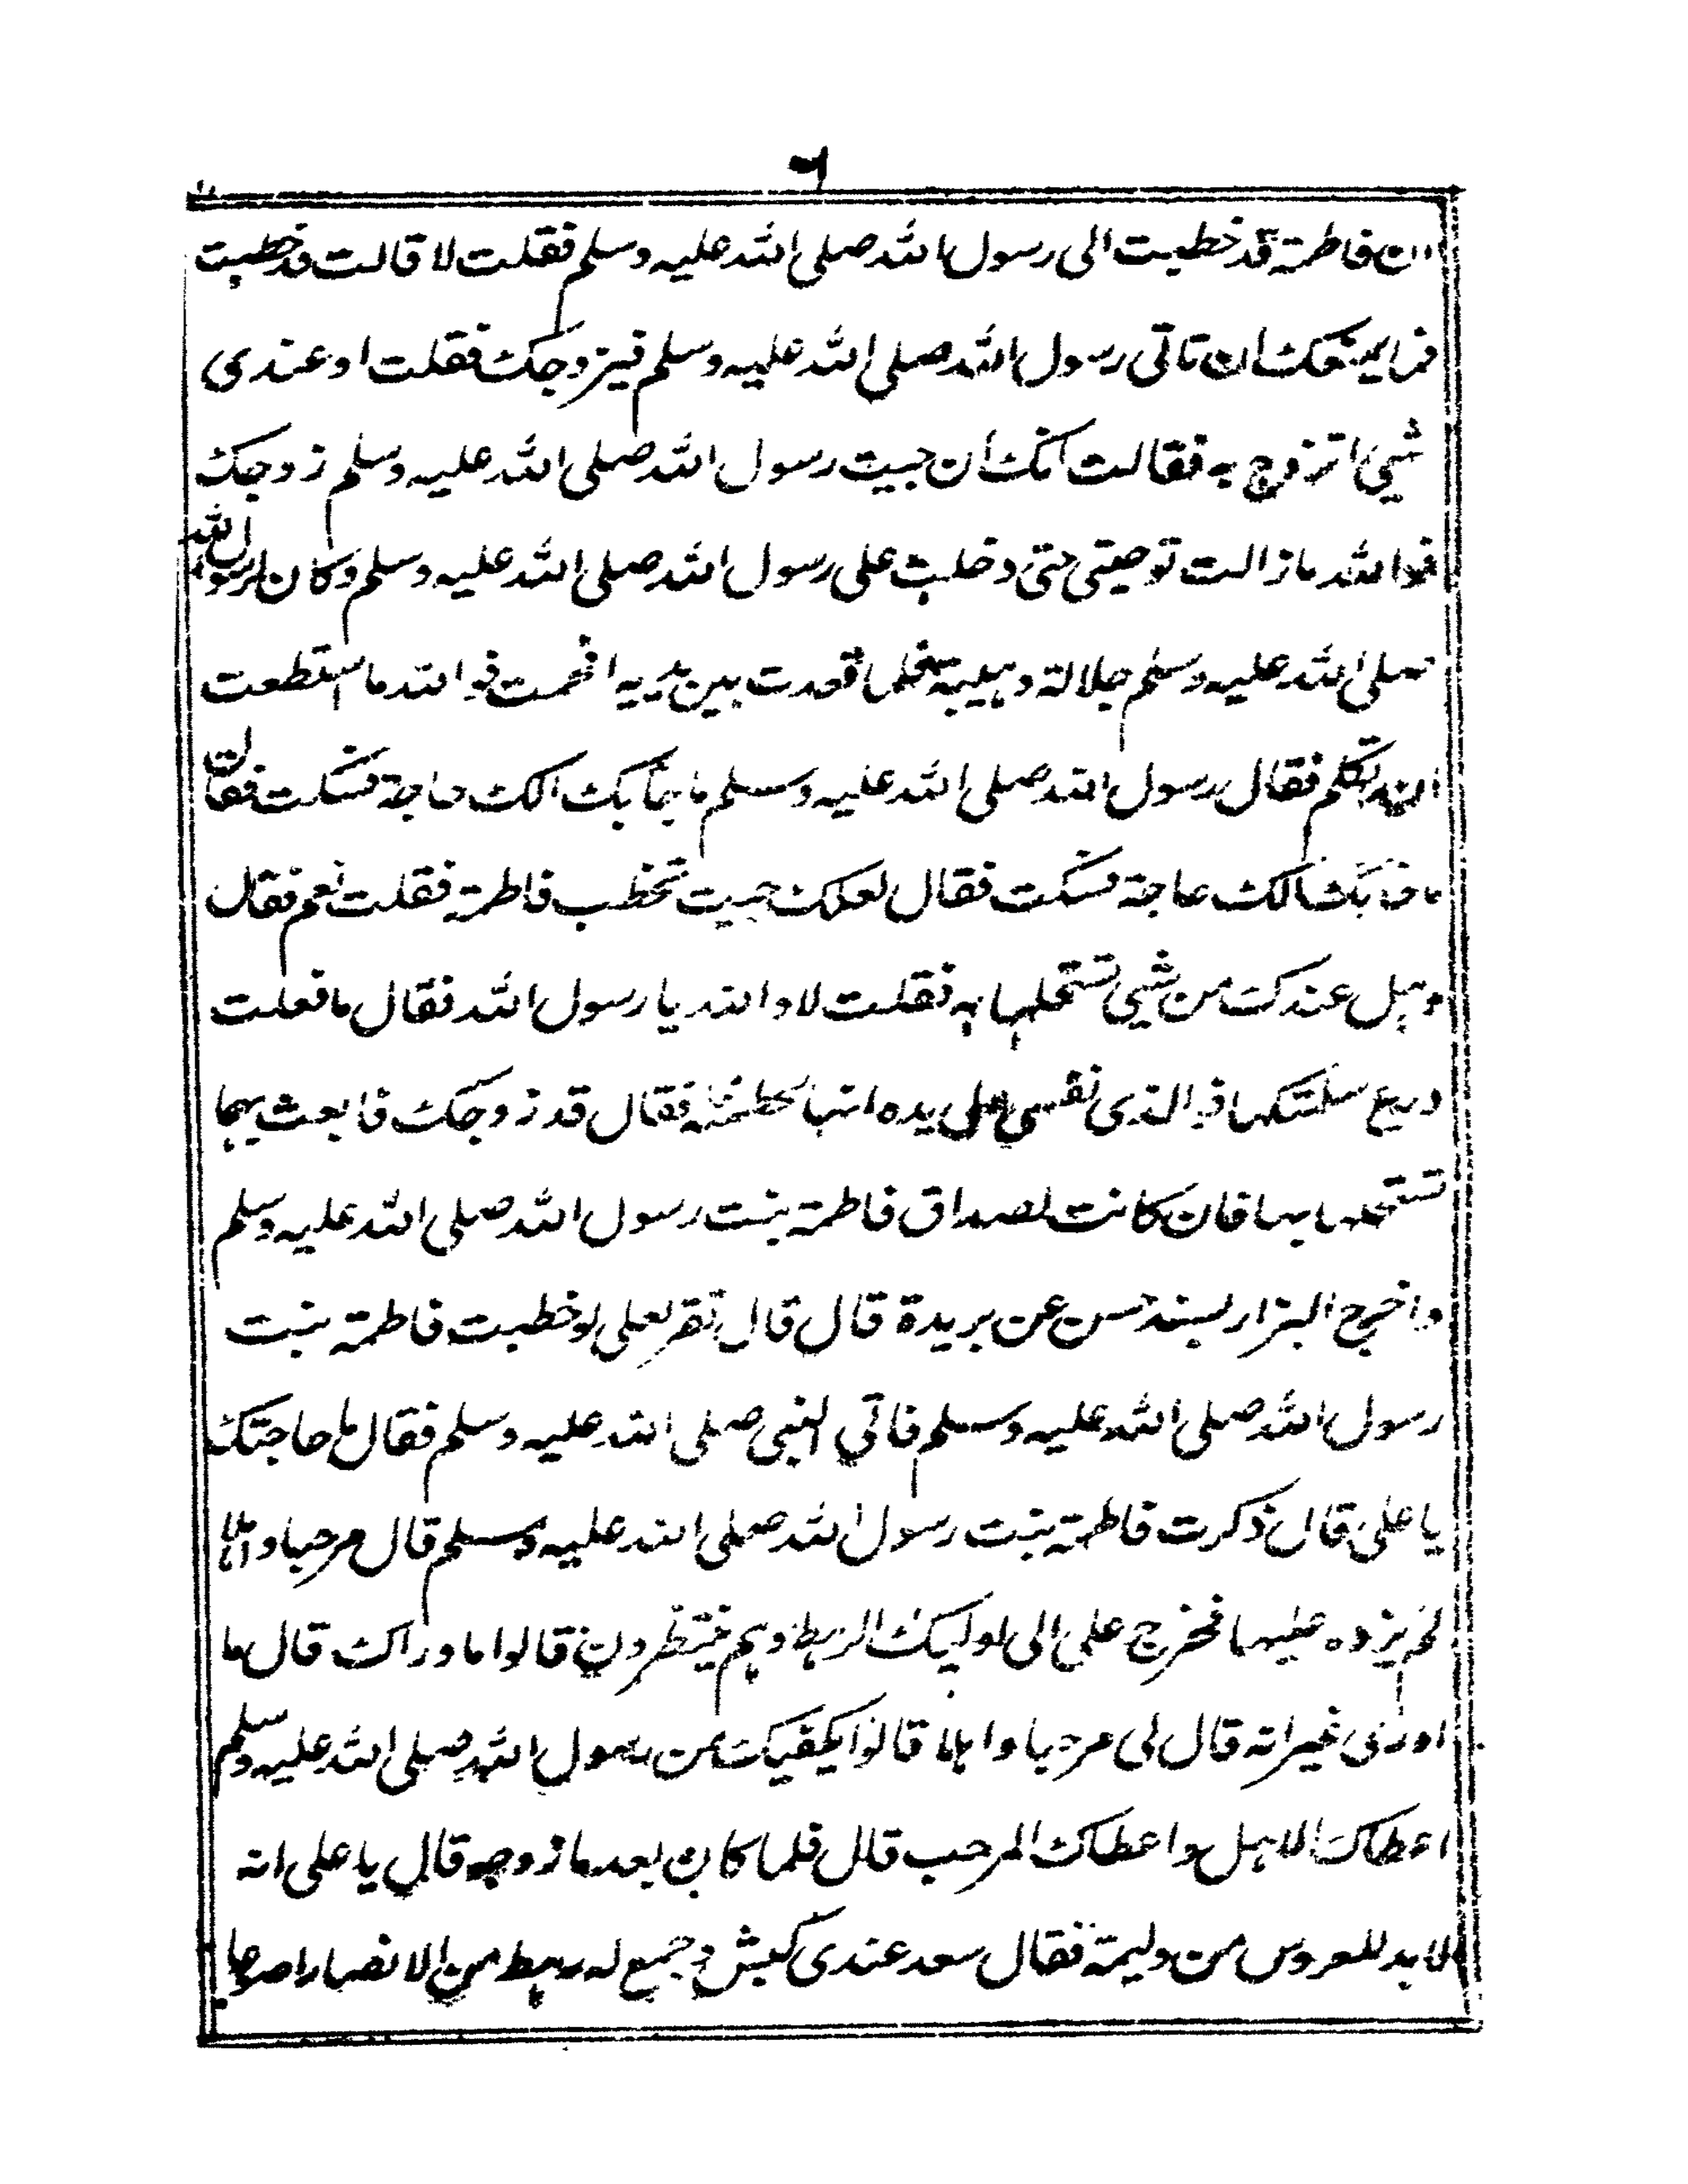 ٦
ان فاطمة قد خطبت الى رسول الله صلى الله عليه وسلم فقلت لا قالت قد خطبت
فما يمنعك ان تاتى رسول الله صلى الله عليه وسلم فيزوجك فقلت او عندى
شيئ اتزوج به فقالت انك ان جيت رسول الله صلى الله عليه وسلم زوجك
فوالله ما زالت توجيتى حتى دخلت على رسول الله صلى الله عليه وسلم وكان لرسول الله
صلى الله عليه وسلم جلالة وهيبة فلما قعدت بين يديه افحمت فوالله ما استطعت
ان اتكلم فقال رسول الله صلى الله عليه وسلم ما جأ بك الك حاجة فسكت فقال
ما جأ بك الك حاجة فسكت فقال لعلك جيت تخطب فاطمة فقلت نعم فقال
وهل عندك من شيئ تستحلها به فقلت لا والله يا رسول الله فقال ما فعلت
درع سلحتكها فوالذى نفس على يده انها لحطمية فقال قد زوجتك فابعث بها
تستحلها بها فان كانت لصداق فاطمة بنت رسول الله صلى الله عليه وسلم
واخرج البزار بسند حسن عن بريدة قال قال نفر لعلى لو خطبت فاطمة بنت
رسول الله صلى الله عليه وسلم فاتى النبى صلى الله عليه وسلم فقال ما حاجتك
يا على قال ذكرت فاطمة بنت رسول الله صلى الله عليه وسلم قال مرحبا واهلا
لم يزده عليها فخرج على الى اوليك الرهط وهم ينتظرون قالوا ما وراك قال ما
ادرى غير انه قال لى مرحبا واهلا قالوا يكفيك من رسول الله صلى الله عليه وسلم
اعطاك الاهل واعطاك المرحب قال فلما كان بعد ما زوجه قال يا على انه
لابد للعروس من وليمة فقال سعد عندى كبش وجمع له رهط من الانصار اصوعا